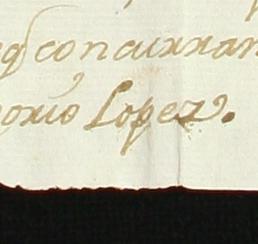 concurran
orio Lopez.